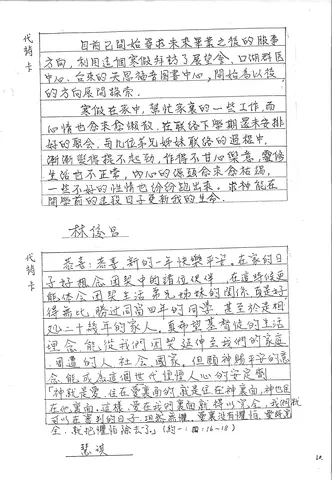 代禱卡
目前已開始尋求未來畢業之後的服事
方向，利用這個寒假拜訪了展望會、口湖群區
中心、台東的天恩福音圖書中心，開始為以後
的方向展開探索。
寒假在家中，幫忙家裏的一些工作，而
心情也愈來愈懶散，在聯絡下學期還未安排
好的聚會，與幾位弟兄姊妹聯絡的過程中，
漸漸覺得提不起勁，作得不甘心樂意，靈修
生活也不正常，內心的源頭愈來愈枯竭，
一些不好的性情也份份跑出來，求神能在
開學前的這段日子更新我的生命。
林俊呂
代禱卡
恭喜！恭喜！新的一年快樂平安。在家的日
子好想念團契中的諸位伙伴，在這時候更
能體會團契生活弟兄姊妹的關係真是好
得無比，勝過同窗四年的同學，甚至於是相
處二十幾年的家人。真希望基督徒的生活
理念能從我們團契延伸至我們的家庭
周遭的人、社會、國家，但願神賜平安的意
念能成為這個世代惶惶人心的安定劑。
「神就是愛，住在愛裏面的就是住在神裏面，神也住
在他裏面。這樣，愛在我們裏面就得以完全，我們就
可以在審判的日子，坦然無懼。愛裏沒有懼怕，愛既完
全，就把懼怕除去了。」（約一4：16-18）